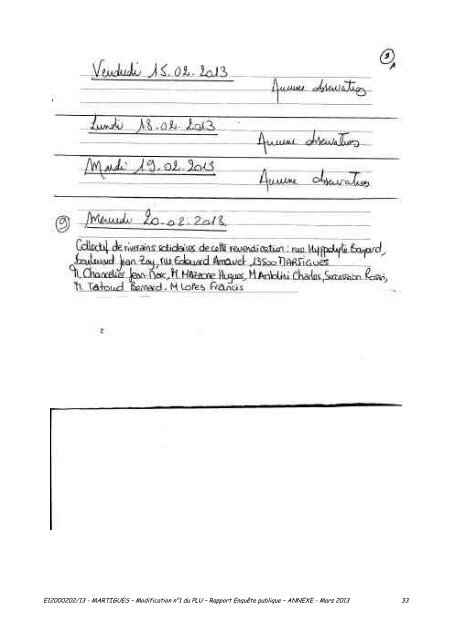 9
Vendredi 15.02.2013
Aucune observation
Lundi 18.02.2013
Aucune observation
Mardi 19.02.2013
Aucune observation
9 Mercredi 20.02.2013
Collectif de riverains solidaires de cette revendication : rue Hyppolyte Bayard,
boulevard Jean Zay, rue Edouard Amavet, 13500 MARTIGUES
M. Chancelier Jean-Marc, M MAZZONE Hugues, M Antolini Charles, Succession Rossi,
M. Tatoud Bernard. M Lopes Francis
E12000202/13 - MARTIGUES – Modification n°1 du PLU – Rapport Enquête publique – ANNEXE - Mars 2013 33